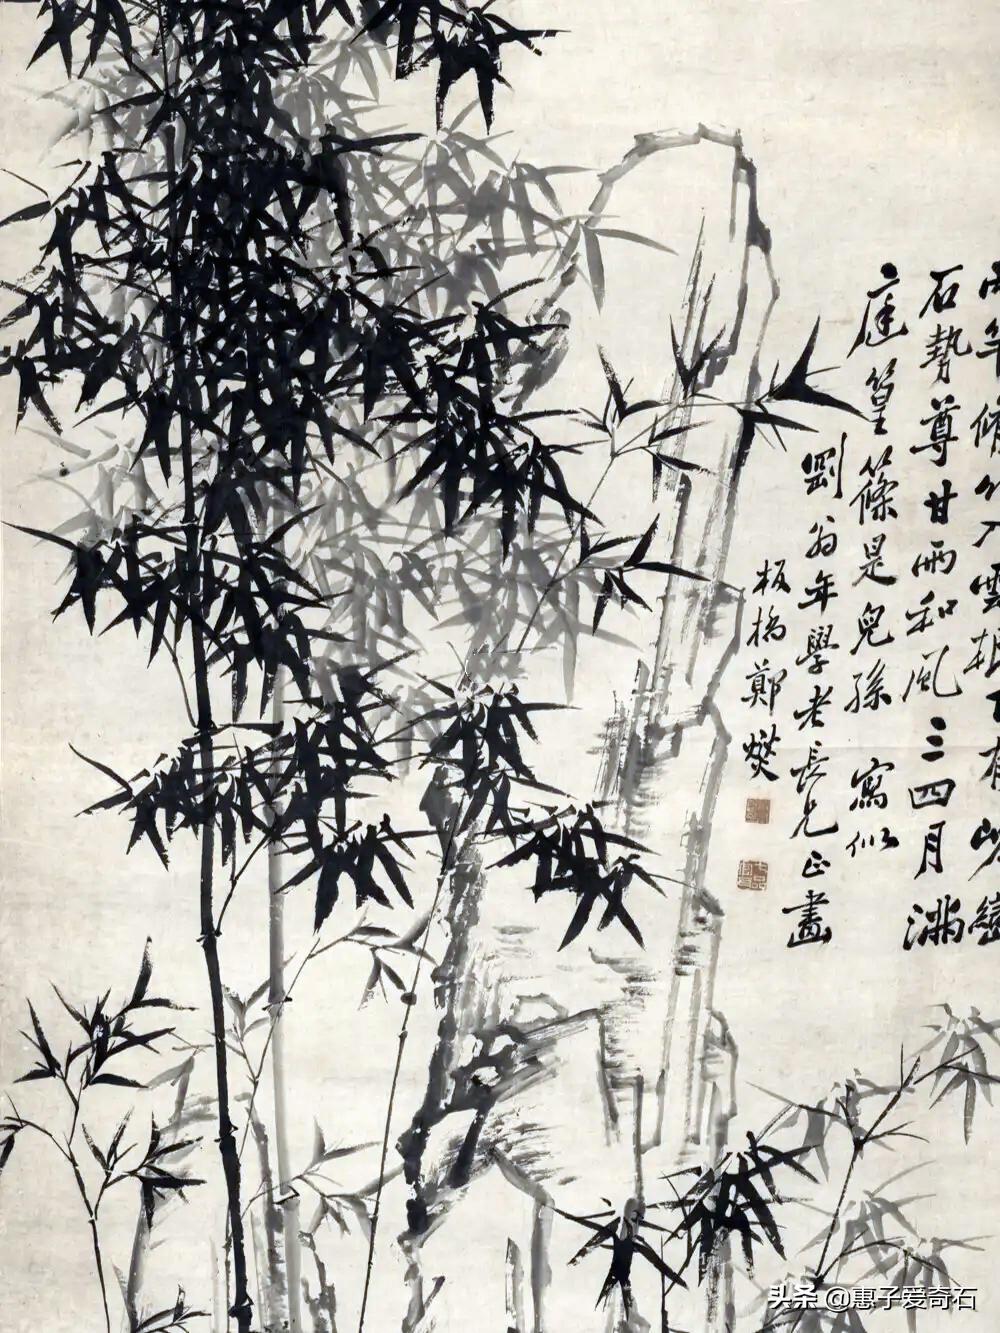 兩竿脩竹入雲根下有巒
石勢尊甘雨和風三四月滿
庭篁篠是兒孫 寫似
劉翁年學老長兄正畫
板橋鄭燮
头条 @惠子爱奇石